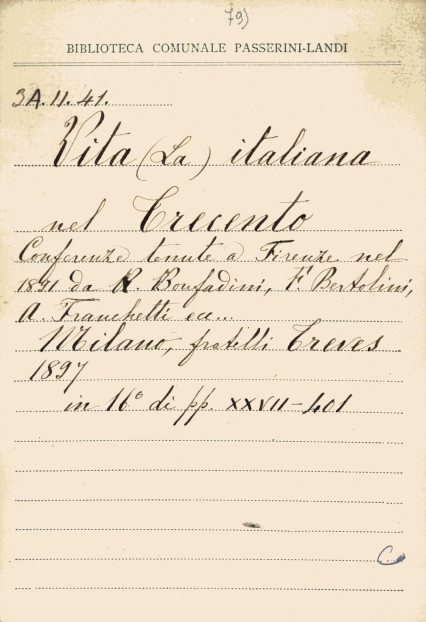 79)
BIBLIOTECA COMUNALE PASSERINI-LANDI
3A.II.41.
Vita (La) italiana
nel Trecento
Conferenze tenute a Firenze nel
1891 da R. Bonfadini, F. Bertolini,
A. Franchetti ecc...
Milano, fratelli Treves
1897
in 16° di pp. XXVII-401
C.